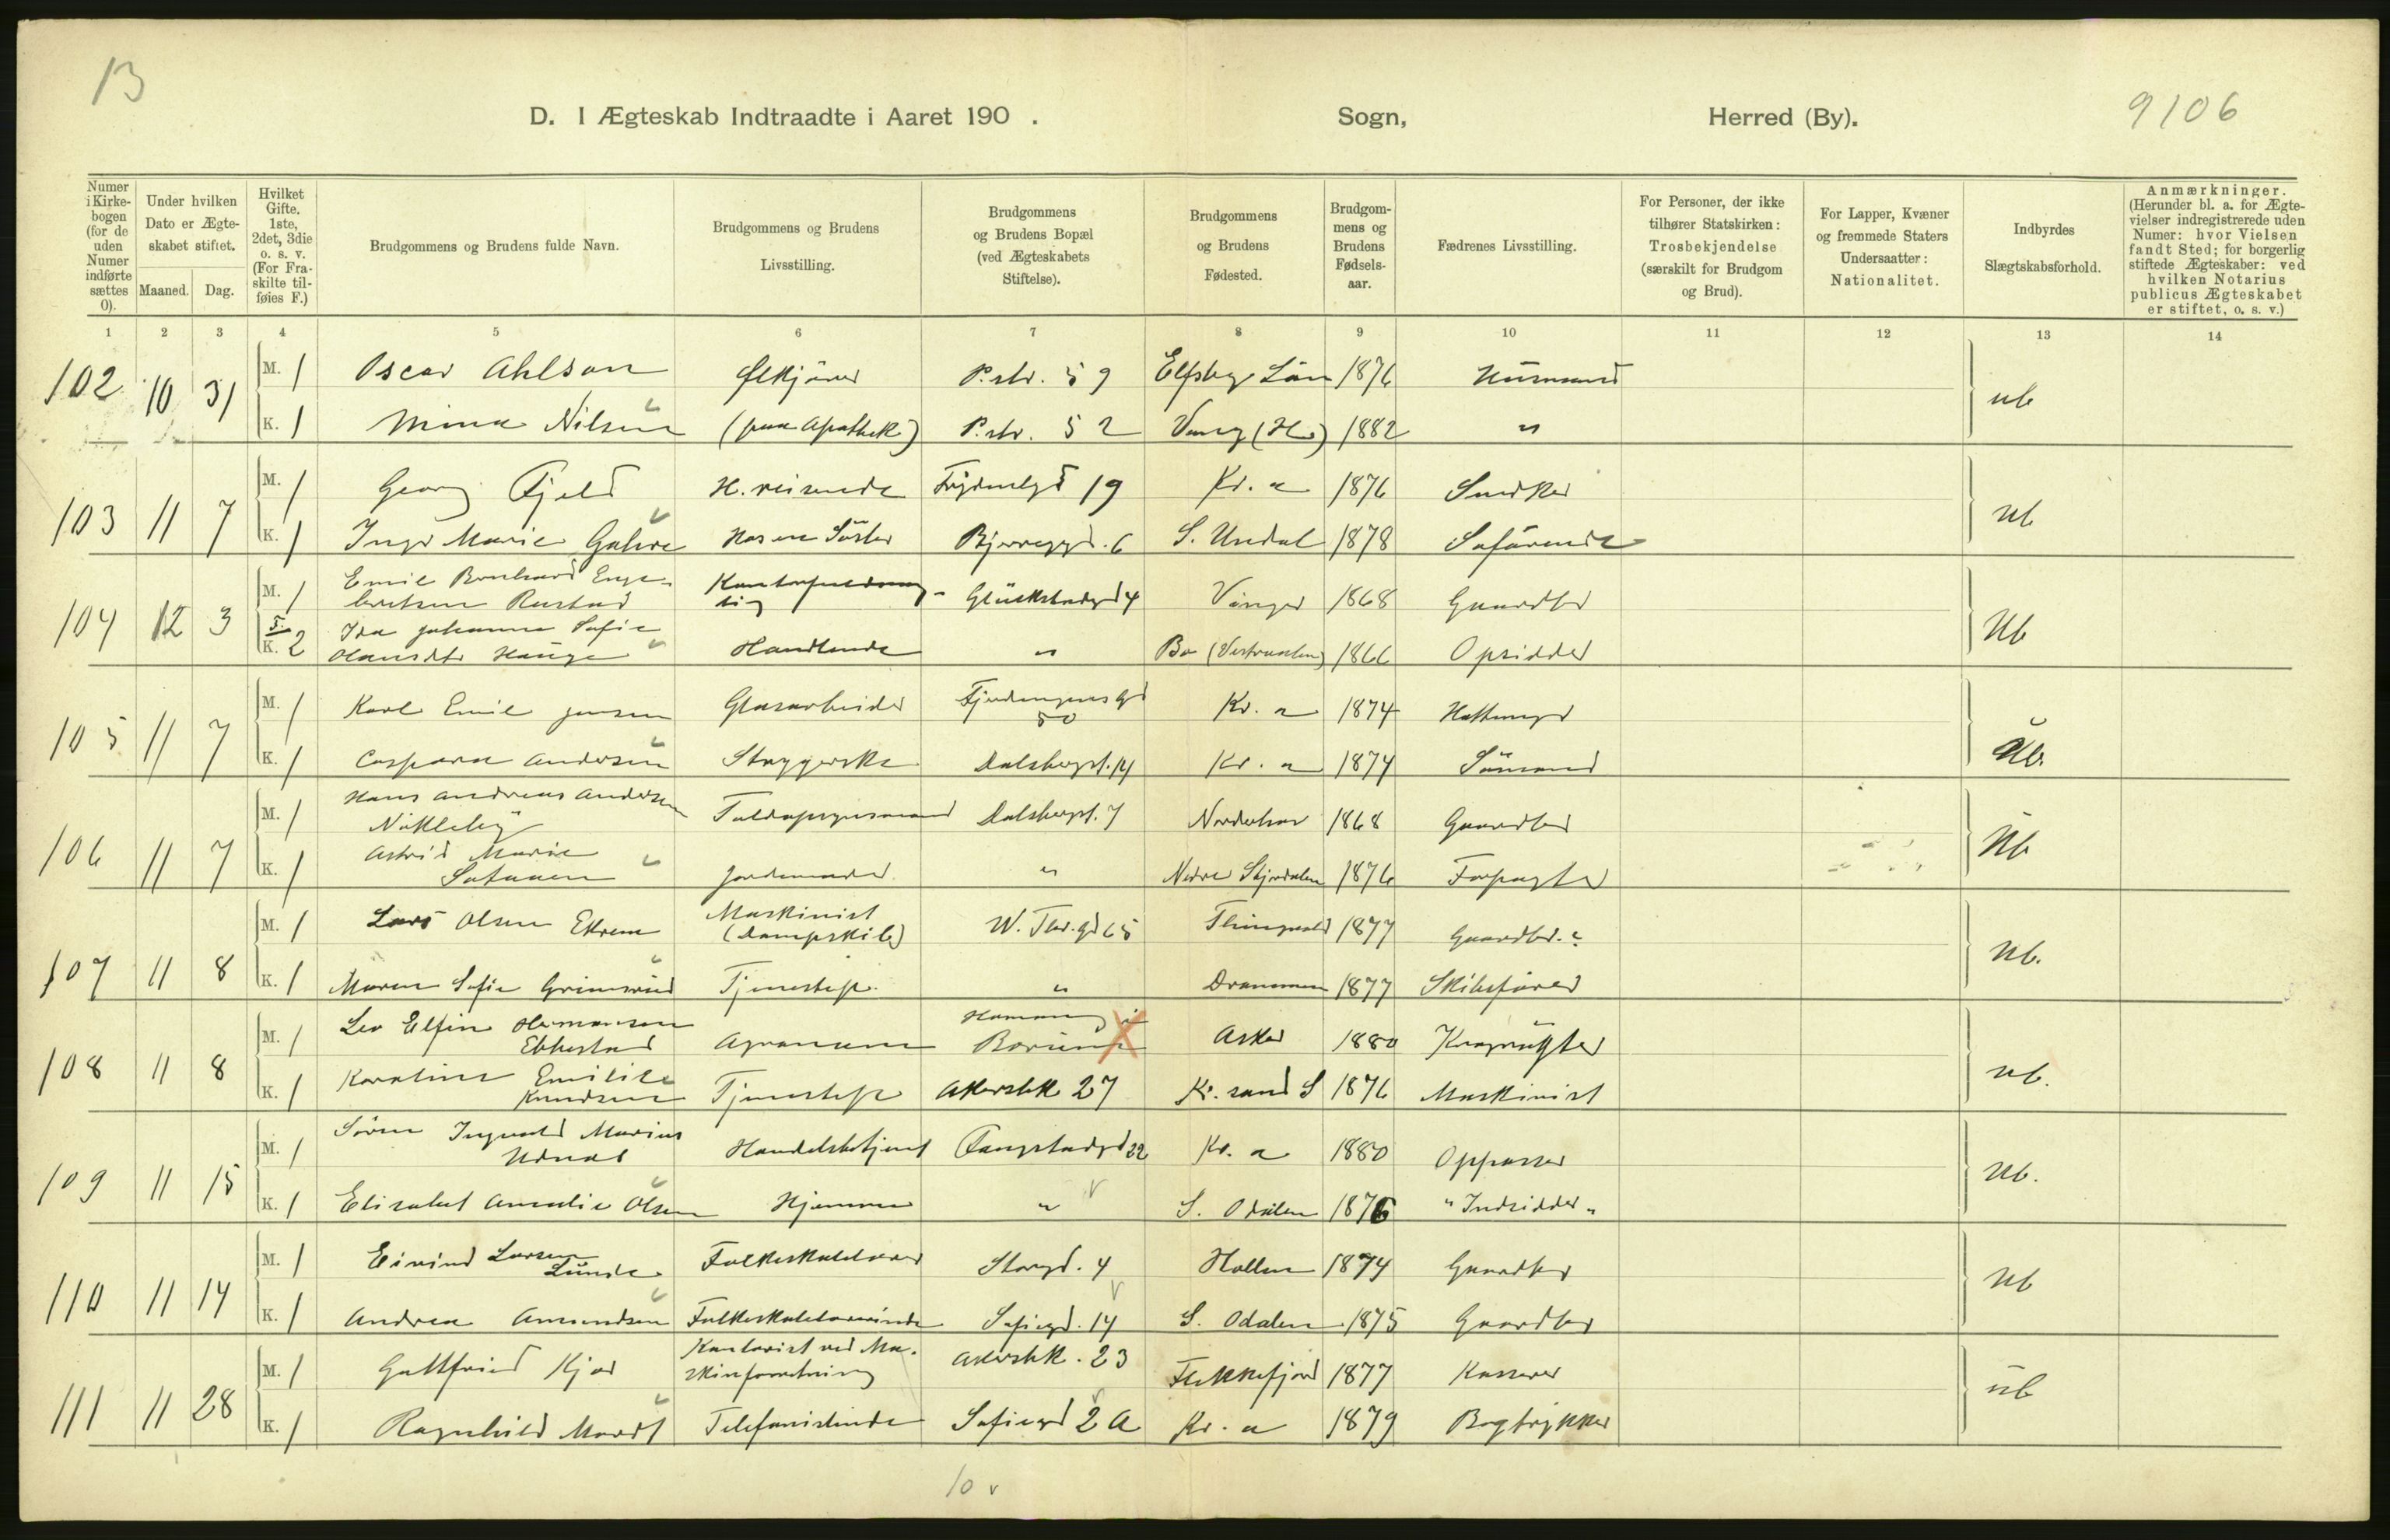 13
D. I Ægteskab Indtraadte i Aaret 190 . Sogn, Herred (By).
9106
Numer i Kirkebogen (for de uden Numer indførte sættes 0).
Under hvilken Dato er Ægteskabet stiftet.
Maaned. Dag.
Hvilket Gifte. 1ste, 2det, 3die o. s. v. (For Fraskilte tilføies F.)
Brudgommens og Brudens fulde Navn.
Brudgommens og Brudens Livsstilling.
Brudgommens og Brudens Bopæl (ved Ægteskabets Stiftelse).
Brudgommens og Brudens Fødested.
Brudgommens og Brudens Fødselsaar.
Fædrenes Livsstilling.
For Personer, der ikke tilhører Statskirken: Trosbekjendelse (særskilt for Brudgom og Brud).
For Lapper, Kvæner og fremmede Staters Undersaatter: Nationalitet.
Indbyrdes Slægtskabsforhold.
Anmærkninger. (Herunder bl. a. for Ægtevielser indregistrerede uden Numer: hvor Vielsen fandt Sted; for borgerlig stiftede Ægteskaber: ved hvilken Notarius publicus Ægteskabet er stiftet, o. s. v.)
1 2 3 4 5 6 7 8 9 10 11 12 13 14
102 10 31 M. 1 Oscar Ahlson Ølkjører P.str. 59 Elfsby Län 1876 Husmand ub
K. 1 Mina Nilsen (paa Apothek) P.str. 52 Vang (H) 1882 "
103 11 7 M. 1 Georg Fjeld H.reisende 19 Kr. a 1876 Snedker ub
K. 1 Marie 6 S. Undal 1878 Søfarende
104 12 3 M. 1 Emil Bernhard Engebretsen Rustad Glückstadgd 4 Vinger 1868 Gaardbr Ub
K. 2 Ida Johanne Sofie Hansdtr Hauge Handlende " Bø (Vesteraalen) 1866 Opsidder
105 11 7 M. 1 Karl Emil Jensen Glasarbeider Fjerdingens gd 50 Kr. a 1874 Ub.
K. 1 Caspara Andersen Strygerske Dalsbergst. 14 Kr. a 1874 Sømand
106 11 7 M. 1 Hans Andreas Andersen Nökleby Toldopsynsmand Dalsbergst. 7 Norderhov 1868 Gaardbr Ub
K. 1 Astrid Marie Jordemoder " Nedre Stjørdalen 1876 Forpagter
107 11 8 M. 1 Lars Olsen Ekrem Maskinist (Dampskib) W. Thr. gd 65 Thingvold 1877 Gaardbr. ? Ub.
K. 1 Maren Sofie Grimsrud Tjenestep. " Drammen 1877 Skibsfører
108 11 8 M. 1 Leo Elfin Hermansen Ebbestad Agronom Bærum X Asker 1880 ub.
K. 1 Karoline Emilie Knudsen Tjenestep Akersbk 27 Kr. sand S 1876 Maskinist
109 11 15 M. 1 Søren Ingvald Marius Udnæs Handelsbetjent Langstadgd 22 Kr. a 1880 Oppasser ub.
K. 1 Elisabet Amalie Olsen Hjemme " S. Odalen 1876 "Indsidder"
110 11 14 M. 1 Eivind Larsen Lunde Folkeskolelærer Storgd. 4 Hollen 1874 Gaardbr ub
K. 1 Andrea Amundsen Folkeskolelærerinde Sofiegd. 14 S. Odalen 1875 Gaardbr
111 11 28 M. 1 Gottfried Kjær Kontorist ved Maskinforretning Akersbk. 23 Flekkefjord 1877 Kasserer ub
K. 1 Ragnhild Mordt Telefonistinde Sofiegd 2 a Kr. a 1879 Bogtrykker
10 v